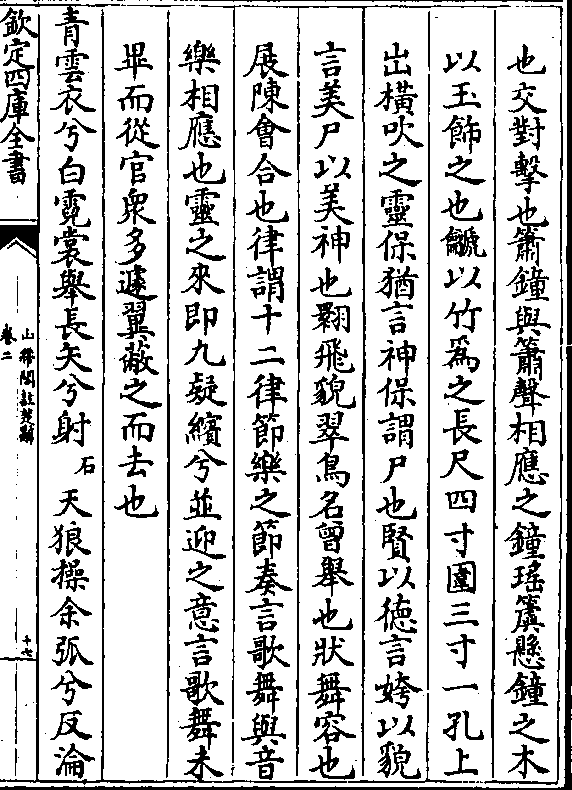 也交對擊也簫鐘與簫聲相應之鐘瑤簴懸鐘之木
以玉飾之也鷈以竹爲之長尺四寸圍三寸一孔上
出橫吹之靈保猶言神保謂尸也賢以徳言姱以貌
言美尸以美神也翾飛貌翠鳥名曾舉也狀舞容也
展陳會合也律謂十二律節樂之節奏言歌舞與音
樂相應也靈之來即九疑繽兮並迎之意言歌舞未
畢而從官衆多遽翼蔽之而去也
青雲衣兮白霓裳舉長矢兮射石天狼操余弧兮反淪
欽定四庫全書
山帶閣註楚辭
卷二
十七